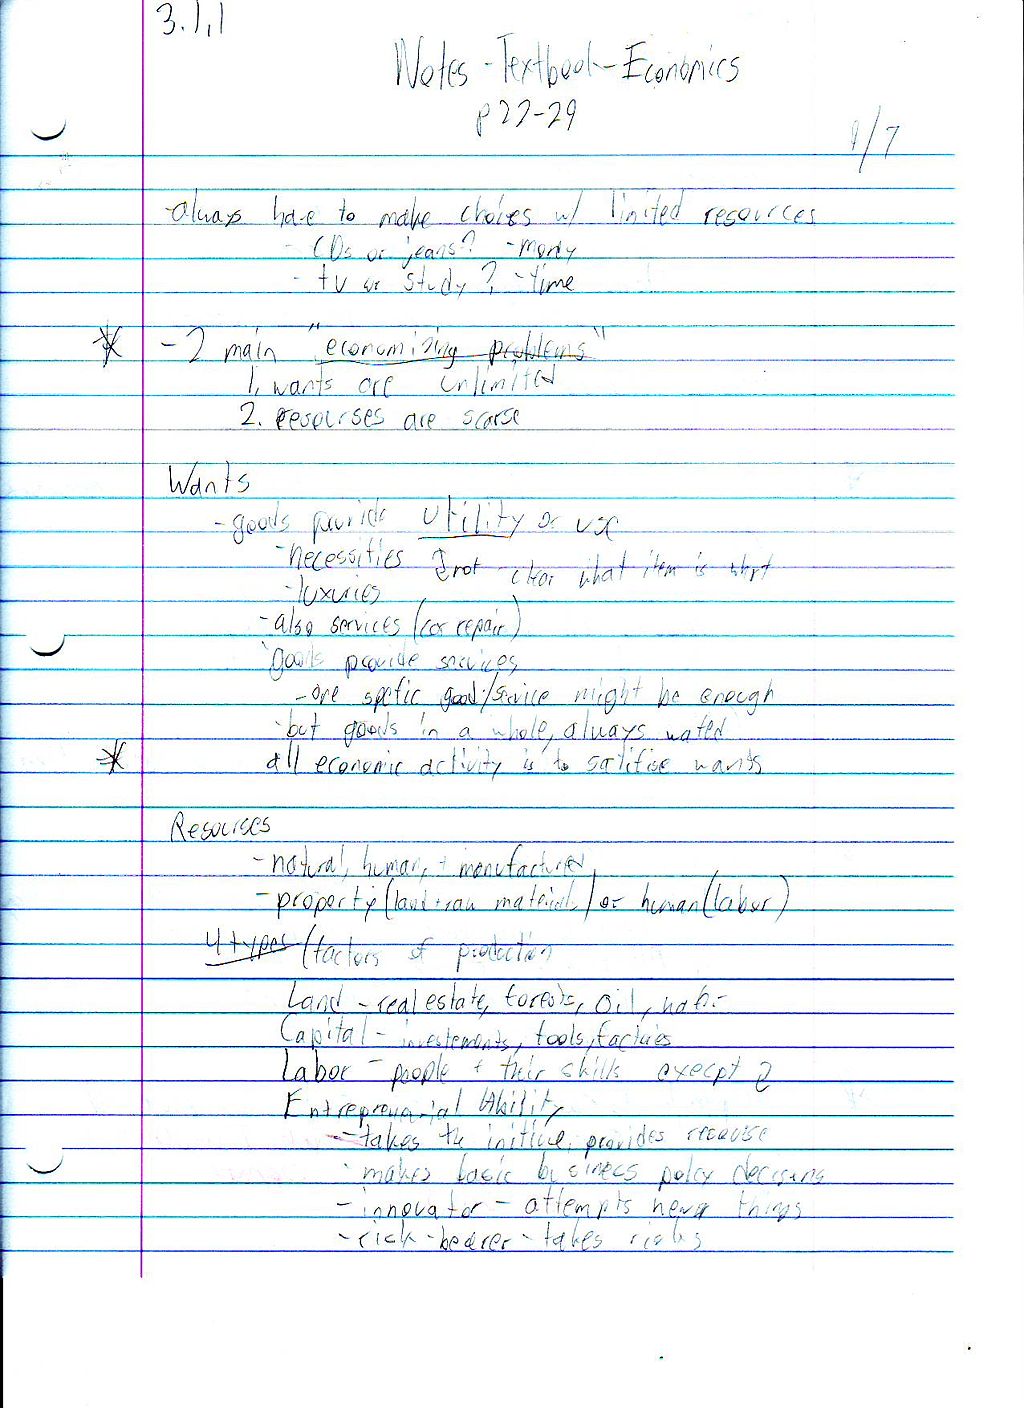 3.1.1
Notes - Textbook - Economics
p 22-29
9/7
-always have to make choices w/ limited resources
- CDs or jeans? - money
- tv or study? - time
* - 2 main "economising problems"
1. wants are unlimited
2. resourses are scarse
Wants
- goods provide utility or use
- necessities ↕ not clear what item is what
- luxuries
- also services (car repair)
goods provide services
- one spefic good/service might be enough
- but goods in a whole, always wated
* all economic activity is to satifise wants
Resourses
- natural, human, + manufactured
- property (land + raw materials) or human (labor)
4 types (factors of protection
Land - real estate, forests, oil,
Capital - investements, tools, factries
Labor - people + their skills execpt
Entreprenarial Ability
- takes the initive, provides
- makes basic business policy decisins
- innovator - attempts new things
- risk - bearer - takes risks